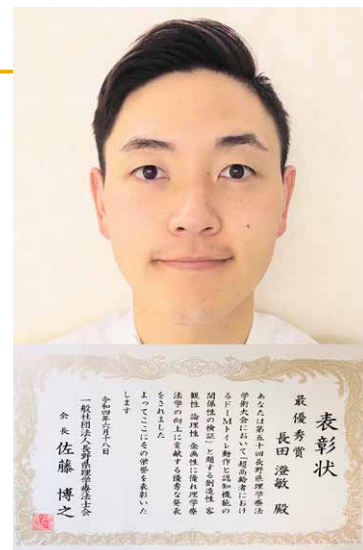 表彰状
最優秀賞
長田 澄敏 殿
あなたは第五十回長野県理学療法
学術大会において「超高齢者におけ
るFIMトイレ動作と認知機能の
関係性の検証」と題する創造性 客
観性 論理性 企画性に優れ理学療
法学の向上に貢献する優秀な発表
をされました
よってここにその栄誉を表彰いた
します
令和四年六月十八日
一般社団法人長野県理学療法士会
会長 佐藤 博之